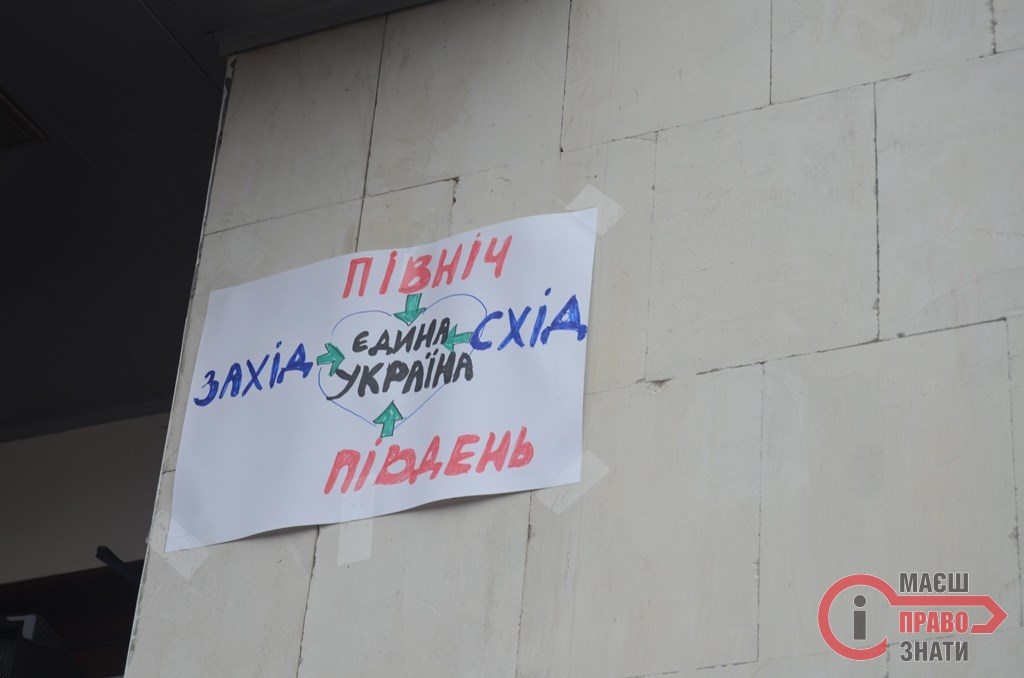 ПІВНІЧ
ЗАХІД ЄДИНА СХІД
УКРАЇНА
ПІВДЕНЬ
МАЄШ
ПРАВО
ЗНАТИ